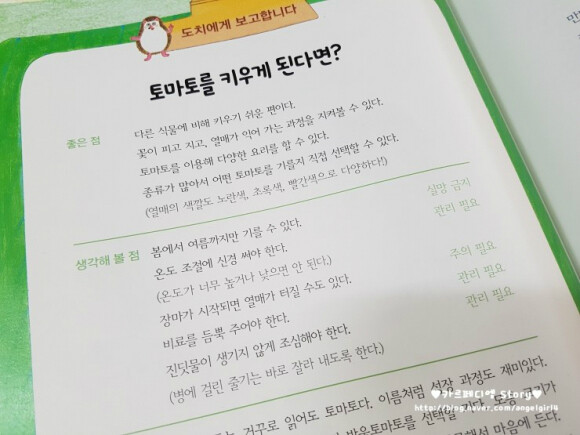 도치에게 보고합니다
토마토를 키우게 된다면?
좋은 점
다른 식물에 비해 키우기 쉬운 편이다.
꽃이 피고 지고, 열매가 익어 가는 과정을 지켜볼 수 있다.
토마토를 이용해 다양한 요리를 할 수 있다.
종류가 많아서 어떤 토마토를 기를지 직접 선택할 수 있다.
(열매의 색깔도 노란색, 초록색, 빨간색으로 다양하다!)
생각해 볼 점
봄에서 여름까지만 기를 수 있다. 실망 금지
온도 조절에 신경 써야 한다. 관리 필요
(온도가 너무 높거나 낮으면 안 된다.)
장마가 시작되면 열매가 터질 수도 있다. 주의 필요
비료를 듬뿍 주어야 한다. 관리 필요
진딧물이 생기지 않게 조심해야 한다. 관리 필요
(병에 걸린 줄기는 바로 잘라 내도록 한다.)
거꾸로 읽어도 토마토다. 이름처럼 성장 과정도 재미있다.
방울토마토를 선택할
마음에 든다.
♥카르페디엠 Story♥
http://blog.naver.com/angelgirl4